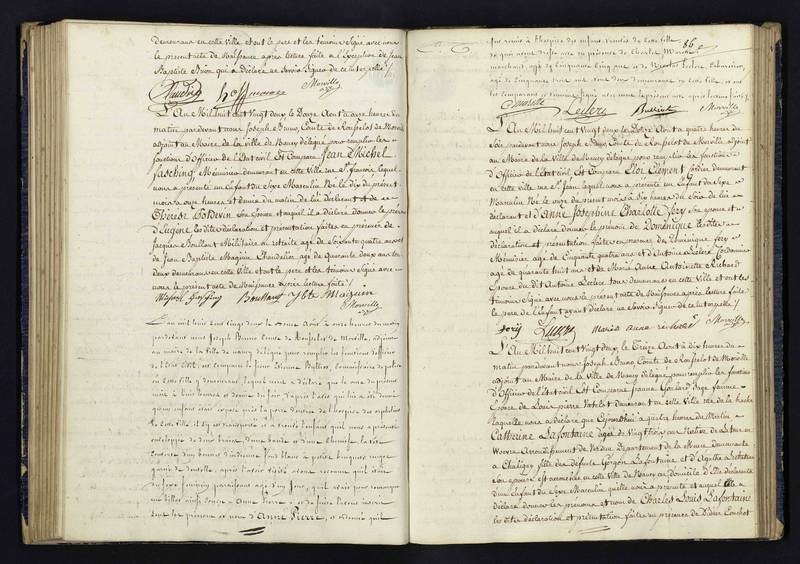 demeurant en cette Ville et ont le pere et les témoins Signé avec nous
le present acte de Naissance après lecture faite à l'Exception de Jean
Baptiste qui a déclaré ne savoir Signer de ce interpellé
Morville
L'An Mil huit cent Vingt deux le Douze Aout à onze heures du
matin pardevant nous Joseph Bruno Comte de Rouselot de Morville
adjoint au Maire de la Ville de Nancy délégué pour remplir les
fonctions d'Officier de l'Etat civil Est Comparu Jean Michel
Fasching Menuisier demeurant en cette Ville rue St. François lequel
nous a présenté un Enfant du Sexe Masculin Né le dix du présent
mois à onze heures et demie du matin de lui déclarant et de
Thérèse Potdevin Son Epouse et auquel il a déclaré donner le prénom
d'Eugène les dites déclaration et présentation faites en présence de
Jacques Boullant Militaire en retraite age de Soixante quatre ans et
de Jean Baptiste Chandelier age de Quarante deux ans les
deux demeurans en cette Ville et ont le pere et les temoins Signé avec
nous le présent acte de Naissance après lecture faite
Morville
L'an mil huit cent vingt deux le douze Aout à onze heures du matin
pardevant nous Joseph Bruno Comte de Rouselot de Morville, adjoint
au maire de la Ville de Nancy délégué pour remplir les fonctions d'officier
de l'Etat Civil, est comparu le Sieur Etienne commissaire de police
en cette Ville y demeurant lequel nous a déclaré que le onze du présent
mois à huit heures et demie du soir d'après l'avis qui lui a été donné
qu'un enfant était exposé près la porte d'entrée de l'hospice des orphelins
de cette ville il s'y est transporté et a trouvé l'enfant qu'il nous a présenté
enveloppé de deux langes, d'une bande et d'une chemise, la tête
couverte d'un bonnet d'indienne fond blanc à petits bouquets rouges
garni de dentelle, après l'avoir visité avons reconnu qu'il était
du sexe féminin paraissant agé d'un jour, qu'il avait pour remarque
un billet ainsi conçu "Anne Pierre" et de suite l'avons inscrit
sous les prénom et nom d'Anne Pierre, et ordonné qu'il
86
fut remis à l'hospice des enfans trouvés de cette ville
de quoi avons dressé acte en présence de Charles
marchand, agé de cinquante cinq ans et de Nicolas Leclerc
agé de Cinquante trois ans tous deux demeurans en cette Ville et ont
les comparant et témoins Signé avec nous le présent acte après lecture faite
Leclerc
Morville
L'An Mil huit cent Vingt deux le Douze Aout à quatre heures du
Soir pardevant nous Joseph Bruno Comte de Rouselot de Morville adjoint
au Maire de la Ville de Nancy délégué pour remplir les fonctions
d'Officier de l'Etat civil Est Comparu Eloi Clement Cordier demeurant
en cette ville rue St. Jean lequel nous a présenté un Enfant du Sexe
Masculin Né le onze du présent mois à dix heures du Soir de lui
déclarant et d'Anne Josephine Charlotte Jory Son epouse et
auquel il a déclaré donner le prénom de Dominique les dites
déclaration et présentation faites en présence de Dominique Jory
Menuisier age de Cinquante quatre ans et d'Antoine Leclerc Cordonnier
age de quarante huit ans et de Marie Anne Antoinette Richard
Epouse du dit Antoine Leclerc tous demeurans en cette Ville et ont les
témoins Signé avec nous le présent acte de Naissance après lecture faite
le pere de l'Enfant ayant déclaré ne Savoir Signer de ce interpellé
Jory Leclerc Morville
L'An Mil huit cent Vingt deux le Treize Aout à dix heures du
matin pardevant nous Joseph Bruno Comte de Rouselot de Morville
adjoint au Maire de la Ville de Nancy délégué pour remplir les fonctions
d'Officier de l'Etat civil Est Comparue Jeanne Sage femme
Epouse de Louis pierre demeurant en cette Ville rue de la hache
laquelle nous a déclaré que Cejourd'hui à quatre heures du Matin
Catherine Lafontaine agée de Vingt trois ans Native de
Woevre Arrondissement de Verdun Departement de la Meuse demeurante
à Chaligny fille de defunts Gorgon Lafontaine et d'Agathe
Son epouse est accouchée en cette Ville de Nancy au domicile d'Elle déclarante
d'un Enfant du Sexe Masculin qu'elle nous a présenté et auquel Elle a
déclaré donner les prenoms et nom de Charles Louis Lafontaine
les dites déclaration et présentation faites en présence de Didier Couchot